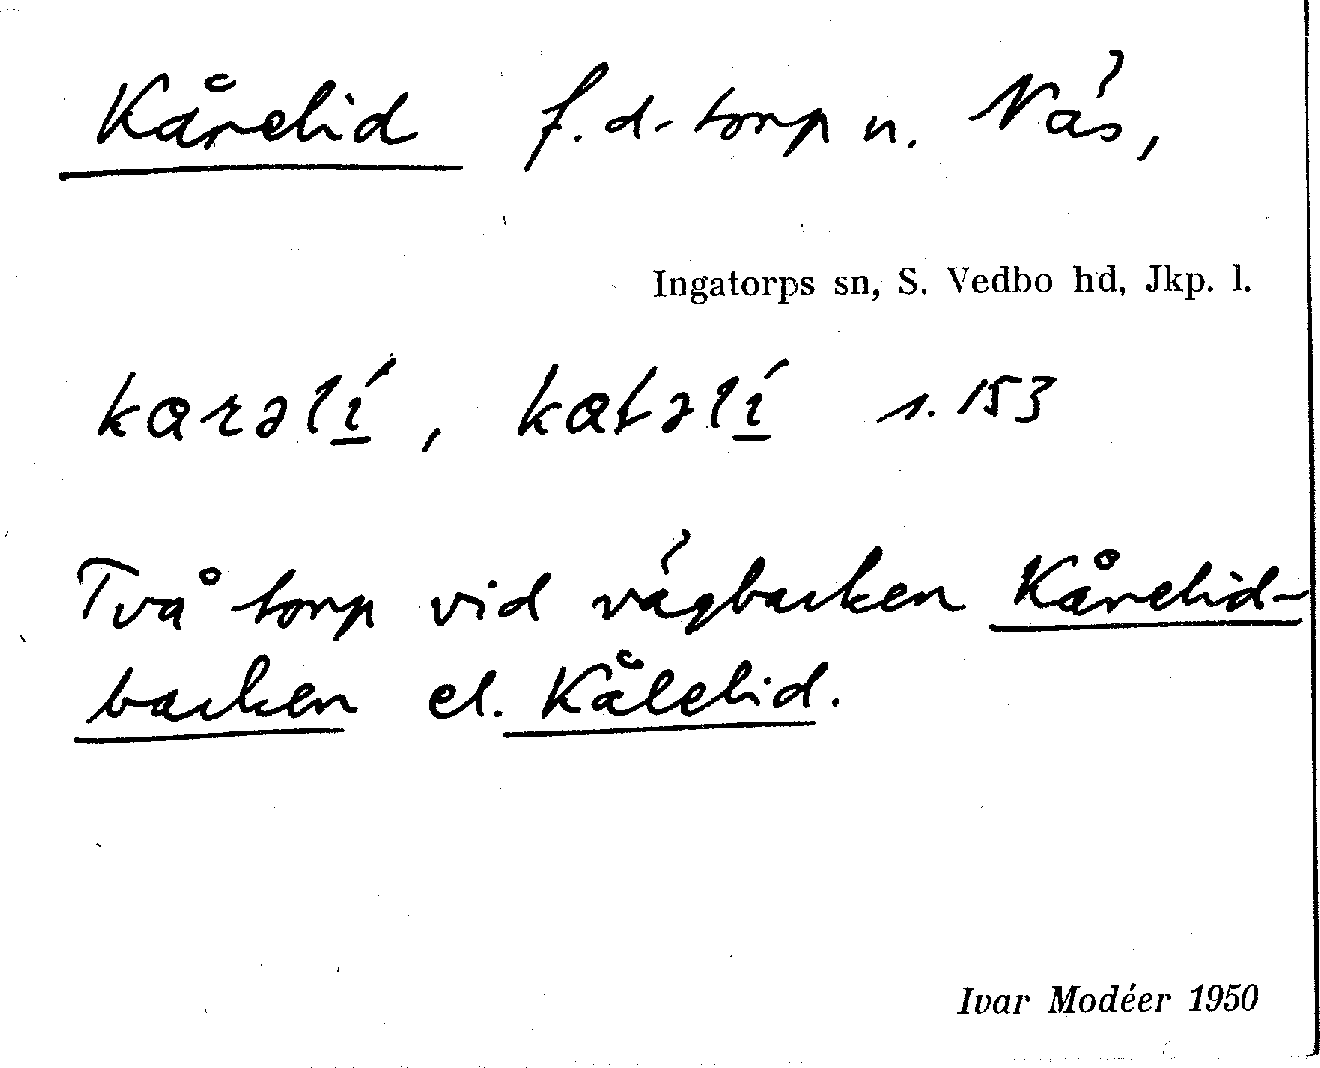 Kårelid f.d. torp u. Näs,
Ingatorps sn, S. Vedbo hd, Jkp. l.
karəlí̱, kaɫəlí̱ s. 153
Två torp vid vägbacken Kårelid-
backen el. Kålelid.
Ivar Modéer 1950